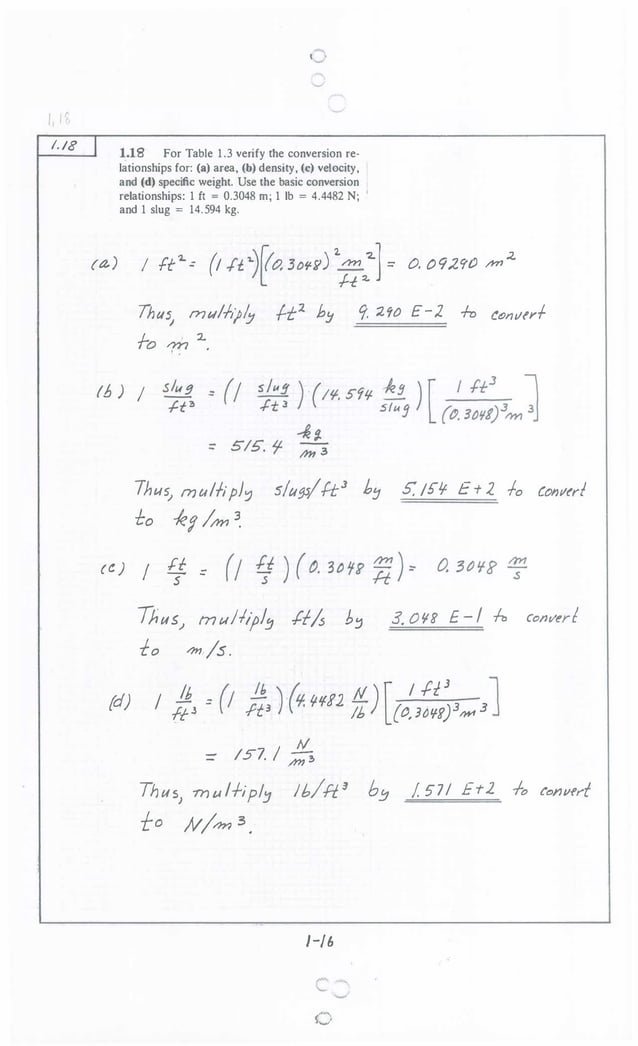 1.18
1.18
1.18 For Table 1.3 verify the conversion re-
lationships for: (a) area, (b) density, (c) velocity,
and (d) specific weight. Use the basic conversion
relationships: 1 ft = 0.3048 m; 1 lb = 4.4482 N;
and 1 slug = 14.594 kg.
(a) 1 ft² = (1 ft²)[(0.3048)² m²/ft²] = 0.09290 m²
Thus, multiply ft² by 9.290 E-2 to convert
to m².
(b) 1 slug/ft³ = (1 slug/ft³)(14.594 kg/slug)[1 ft³/(0.3048)³m³]
= 515.4 kg/m³
Thus, multiply slugs/ft³ by 5.154 E+2 to convert
to kg/m³.
(c) 1 ft/s = (1 ft/s)(0.3048 m/ft) = 0.3048 m/s
Thus, multiply ft/s by 3.048 E-1 to convert
to m/s.
(d) 1 lb/ft³ = (1 lb/ft³)(4.4482 N/lb)[1 ft³/(0.3048)³m³]
= 157.1 N/m³
Thus, multiply lb/ft³ by 1.571 E+2 to convert
to N/m³.
1-16